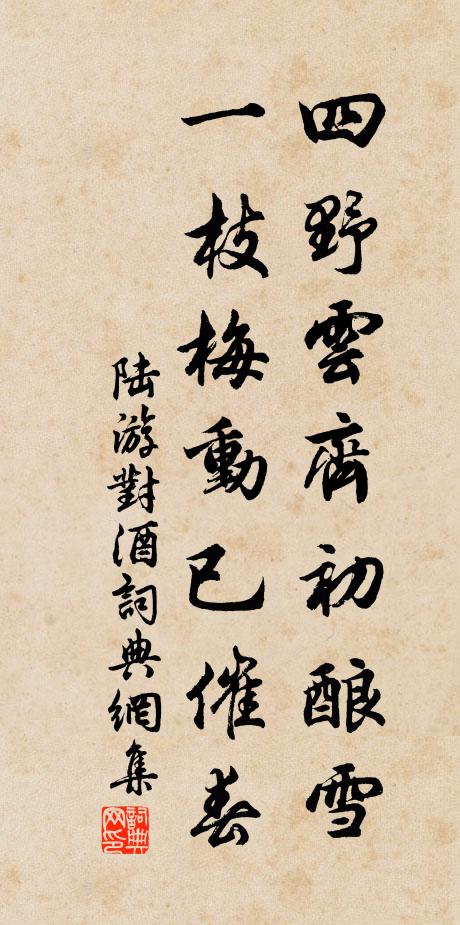 四野雲齊初酿雪
一枝梅動已催春
陆游對酒詞典網集
詞典
网印